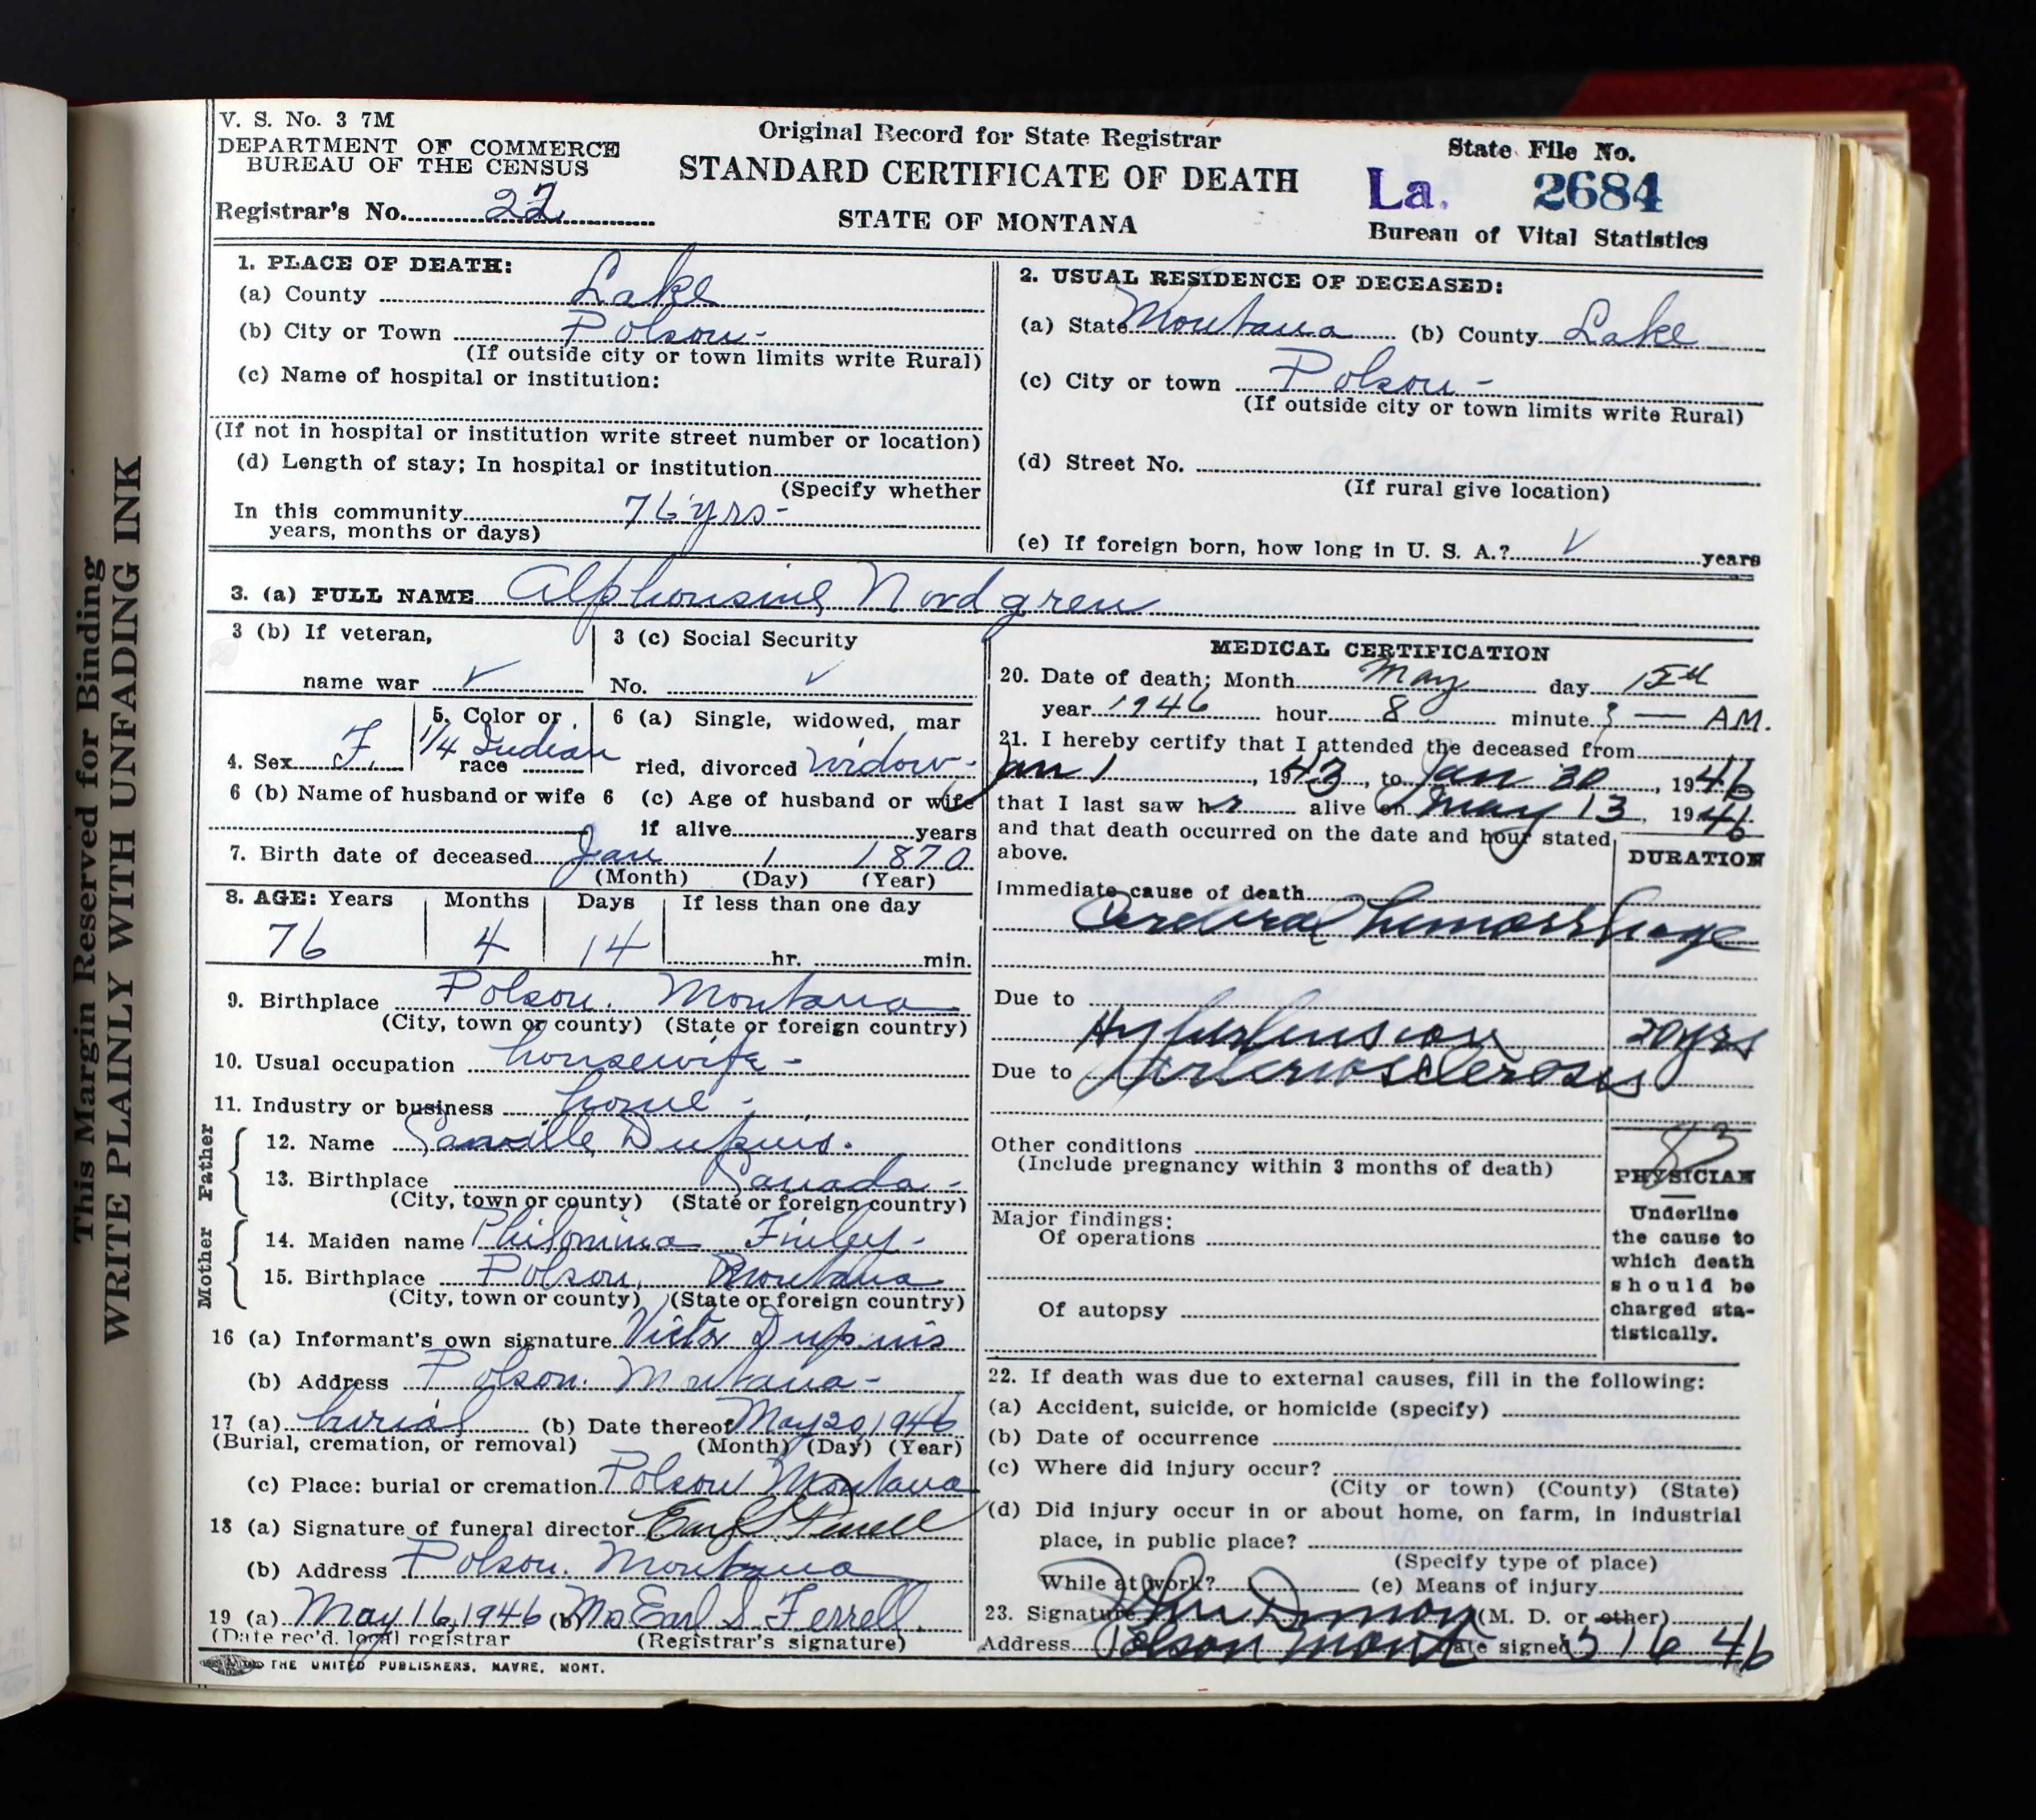 V. S. No. 3 7M
DEPARTMENT OF COMMERCE
BUREAU OF THE CENSUS
Registrar's No. 22
Original Record for State Registrar
STANDARD CERTIFICATE OF DEATH
STATE OF MONTANA
State File No.
La. 2684
Bureau of Vital Statistics
This Margin Reserved for Binding
WRITE PLAINLY WITH UNFADING INK
1. PLACE OF DEATH:
(a) County Lake
(b) City or Town Polson-
(If outside city or town limits write Rural)
(c) Name of hospital or institution:
(If not in hospital or institution write street number or location)
(d) Length of stay; In hospital or institution
(Specify whether
In this community 76 yrs-
years, months or days)
2. USUAL RESIDENCE OF DECEASED:
(a) State Montana (b) County Lake
(c) City or town Polson-
(If outside city or town limits write Rural)
(d) Street No.
(If rural give location)
(e) If foreign born, how long in U. S. A.? ✓ years
3. (a) FULL NAME Alphonsine Nordgren
3 (b) If veteran,
name war ✓
3 (c) Social Security
No. ✓
4. Sex F.
5. Color or
race 1/4 Indian
6 (a) Single, widowed, mar
ried, divorced widow-
6 (b) Name of husband or wife
6 (c) Age of husband or wife
if alive years
7. Birth date of deceased Jan 1 1870
(Month) (Day) (Year)
8. AGE: Years Months Days If less than one day
76 4 14 hr. min.
9. Birthplace Polson. Montana
(City, town or county) (State or foreign country)
10. Usual occupation housewife-
11. Industry or business home-
Father
12. Name Camille Dupuis.
13. Birthplace Canada-
(City, town or county) (State or foreign country)
Mother
14. Maiden name Philomina Finley-
15. Birthplace Polson, Montana
(City, town or county) (State or foreign country)
16 (a) Informant's own signature Victor Dupuis
(b) Address Polson. Montana-
17 (a) burial (b) Date thereof May 20, 1946
(Burial, cremation, or removal) (Month) (Day) (Year)
(c) Place: burial or cremation Polson Montana
18 (a) Signature of funeral director Earl S Ferrell
(b) Address Polson. Montana
19 (a) May 16, 1946 (b) Mrs Earl S. Ferrell
(Date rec'd. local registrar (Registrar's signature)
THE UNITED PUBLISHERS, HAVRE, MONT.
MEDICAL CERTIFICATION
20. Date of death; Month May day 15th
year 1946 hour 8 minute — AM.
21. I hereby certify that I attended the deceased from
Jan 1, 1943, to Jan 30, 1946
that I last saw hr alive on May 13, 1946
and that death occurred on the date and hour stated
above.
DURATION
Immediate cause of death
Cerebral hemorrhage
Due to
Hypertension 20 yrs
Due to Arteriosclerosis
83
Other conditions
(Include pregnancy within 3 months of death)
Major findings:
Of operations
Of autopsy
PHYSICIAN
Underline
the cause to
which death
should be
charged sta-
tistically.
22. If death was due to external causes, fill in the following:
(a) Accident, suicide, or homicide (specify)
(b) Date of occurrence
(c) Where did injury occur?
(City or town) (County) (State)
(d) Did injury occur in or about home, on farm, in industrial
place, in public place?
(Specify type of place)
While at work? (e) Means of injury
23. Signature (M. D. or other)
Address Polson Mont Date signed 5 16 46